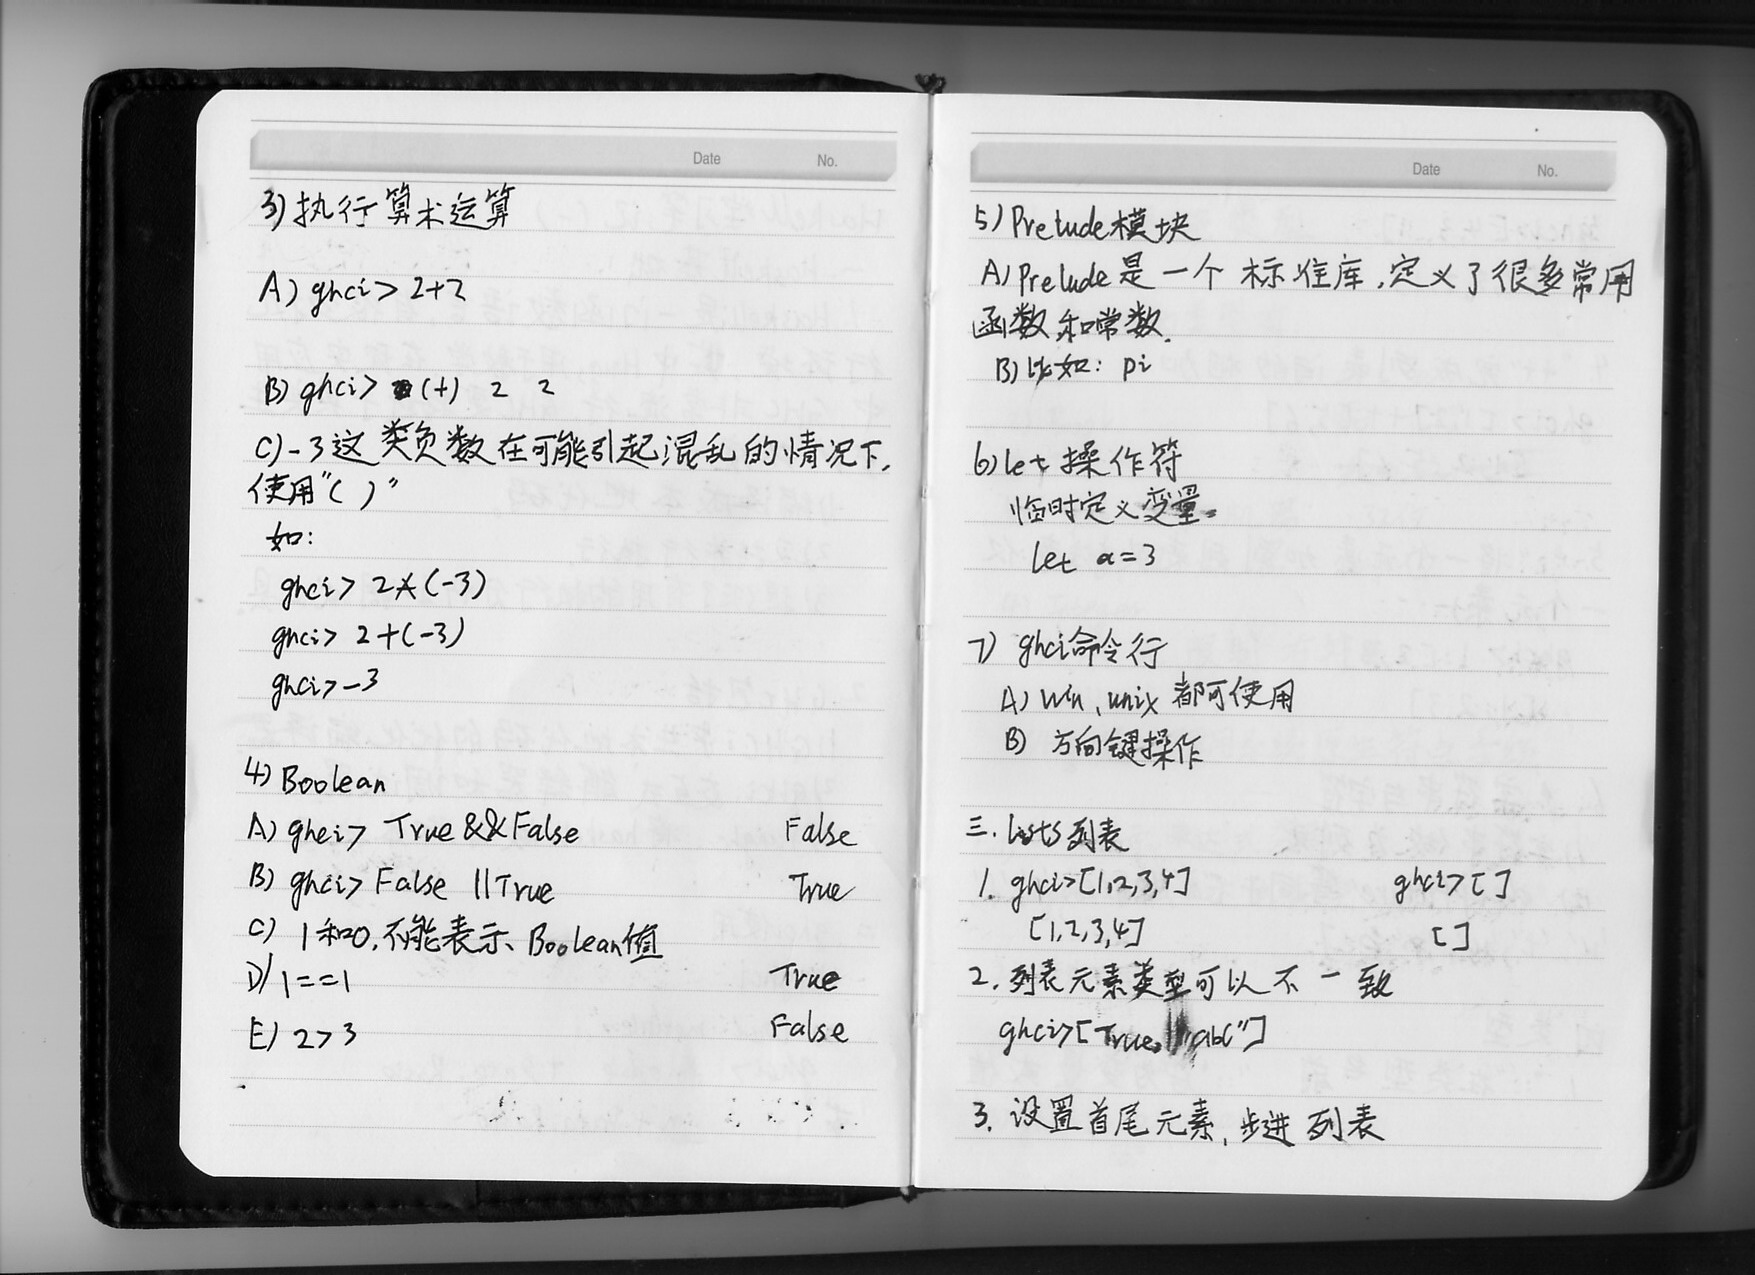 Date No.
3) 执行算术运算
A) ghci> 2+2
B) ghci> (+) 2 2
C) -3这类负数在可能引起混乱的情况下,
使用"( )"
如:
ghci> 2*(-3)
ghci> 2+(-3)
ghci> -3
4) Boolean
A) ghci> True && False False
B) ghci> False || True True
C) 1和0,不能表示、Boolean值
D) 1==1 True
E) 2>3 False
Date No.
5) Prelude模块
A) Prelude是一个标准库,定义了很多常用
函数和常数.
B) 比如: pi
6) let操作符
临时定义变量。
let a=3
7) ghci命令行
A) Win、unix 都可使用
B) 方向键操作
三. lists列表
1. ghci>[1,2,3,4] ghci>[]
[1,2,3,4] []
2. 列表元素类型可以不一致
ghci>[True, "abc"]
3. 设置首尾元素,步进列表